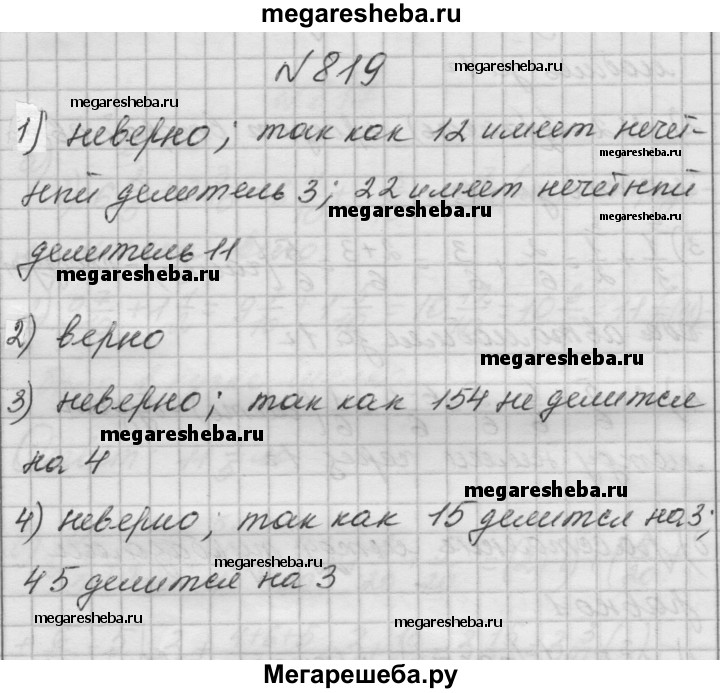 megaresheba.ru
№819
megaresheba.ru
megaresheba.ru
1) неверно; так как 12 имеет нечёт-
megaresheba.ru
ный делитель 3; 22 имеет нечётный
megaresheba.ru
megaresheba.ru
делитель 11
megaresheba.ru
2) верно
megaresheba.ru
3) неверно; так как 154 не делится
megaresheba.ru
на 4
megaresheba.ru
4) неверно; так как 15 делится на 3;
megaresheba.ru
45 делится на 3
megaresheba.ru
megaresheba.ru
Мегарешеба.ру